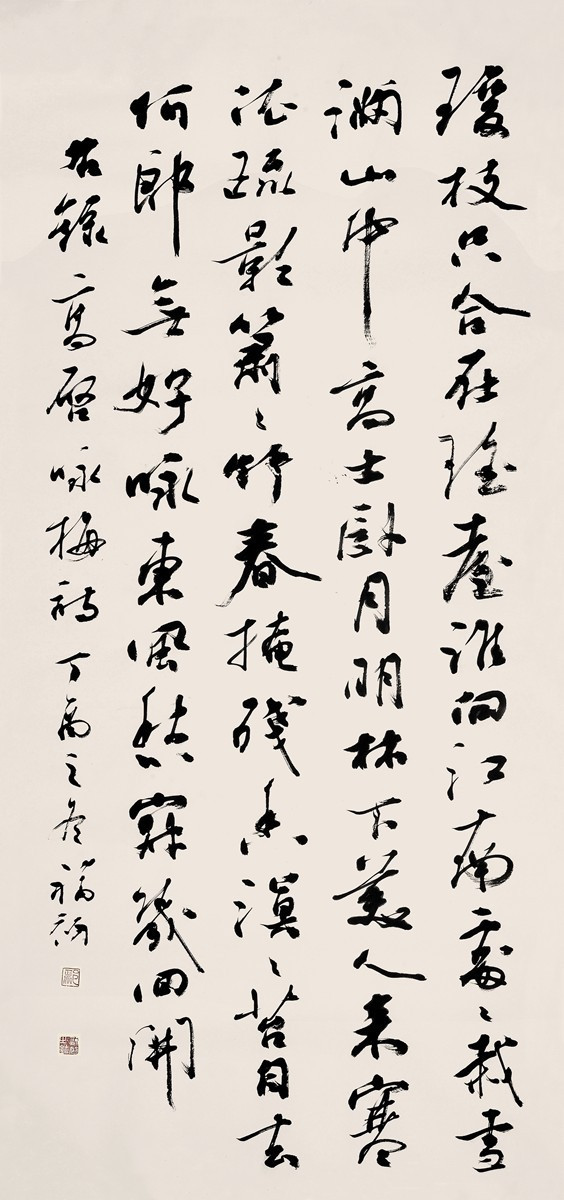 瓊枝只合在瑤臺誰向江南處々栽雪
滿山中高士卧月明林下美人来寒
依疏影蕭々竹春掩殘香漠々苔自去
何郎無好咏東風愁寂幾回開
右錄高啓咏梅詩丁酉之冬福